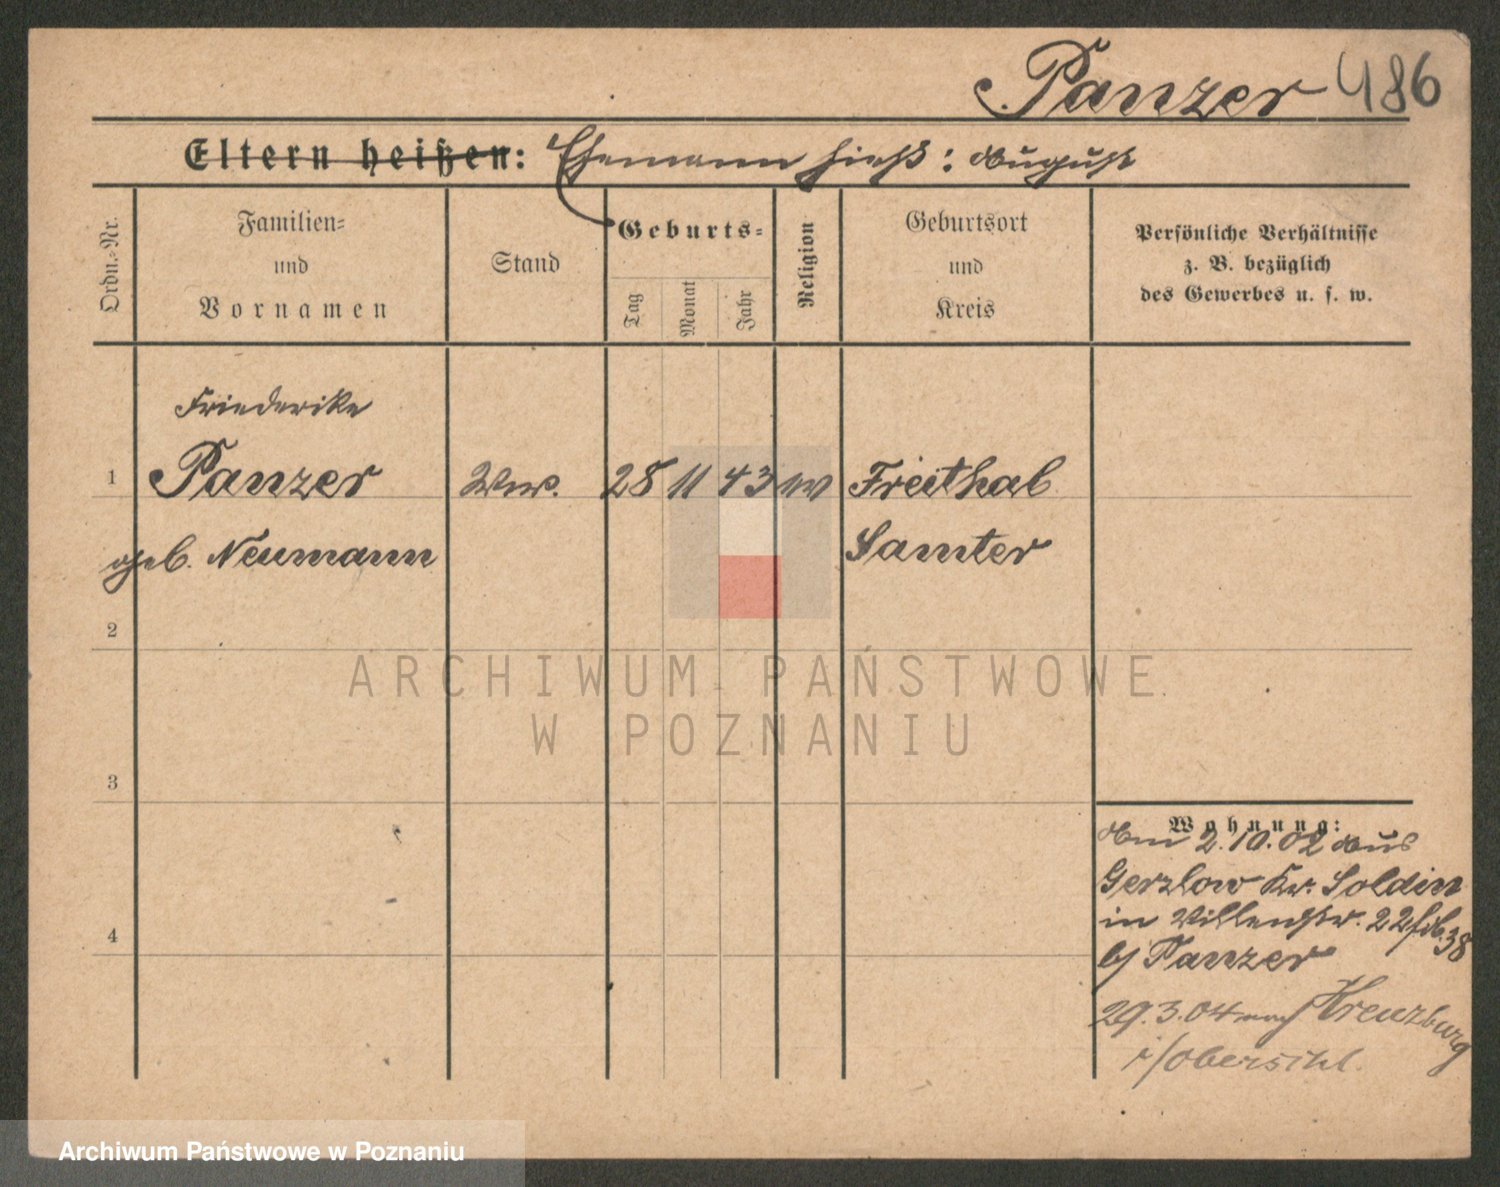 Panzer 486
Eltern heißen: Ehemann hieß: August
Ordn.-Nr.
Familien-
und
Vornamen
Stand
Geburts-
Tag
Monat
Jahr
Religion
Geburtsort
und
Kreis
Persönliche Verhältnisse
z. B. bezüglich
des Gewerbes u. s. w.
Friederike
1 Panzer Ww. 28 11 43 Freithal
geb. Neumann Samter
2
3
4
Wohnung:
Am 2.10.02 aus
Gerzlow Kr. Soldin
in 22
b/ Panzer
29.3.04 nach Kreuzburg
i/Oberschl.
ARCHIWUM PAŃSTWOWE
W POZNANIU
Archiwum Państwowe w Poznaniu